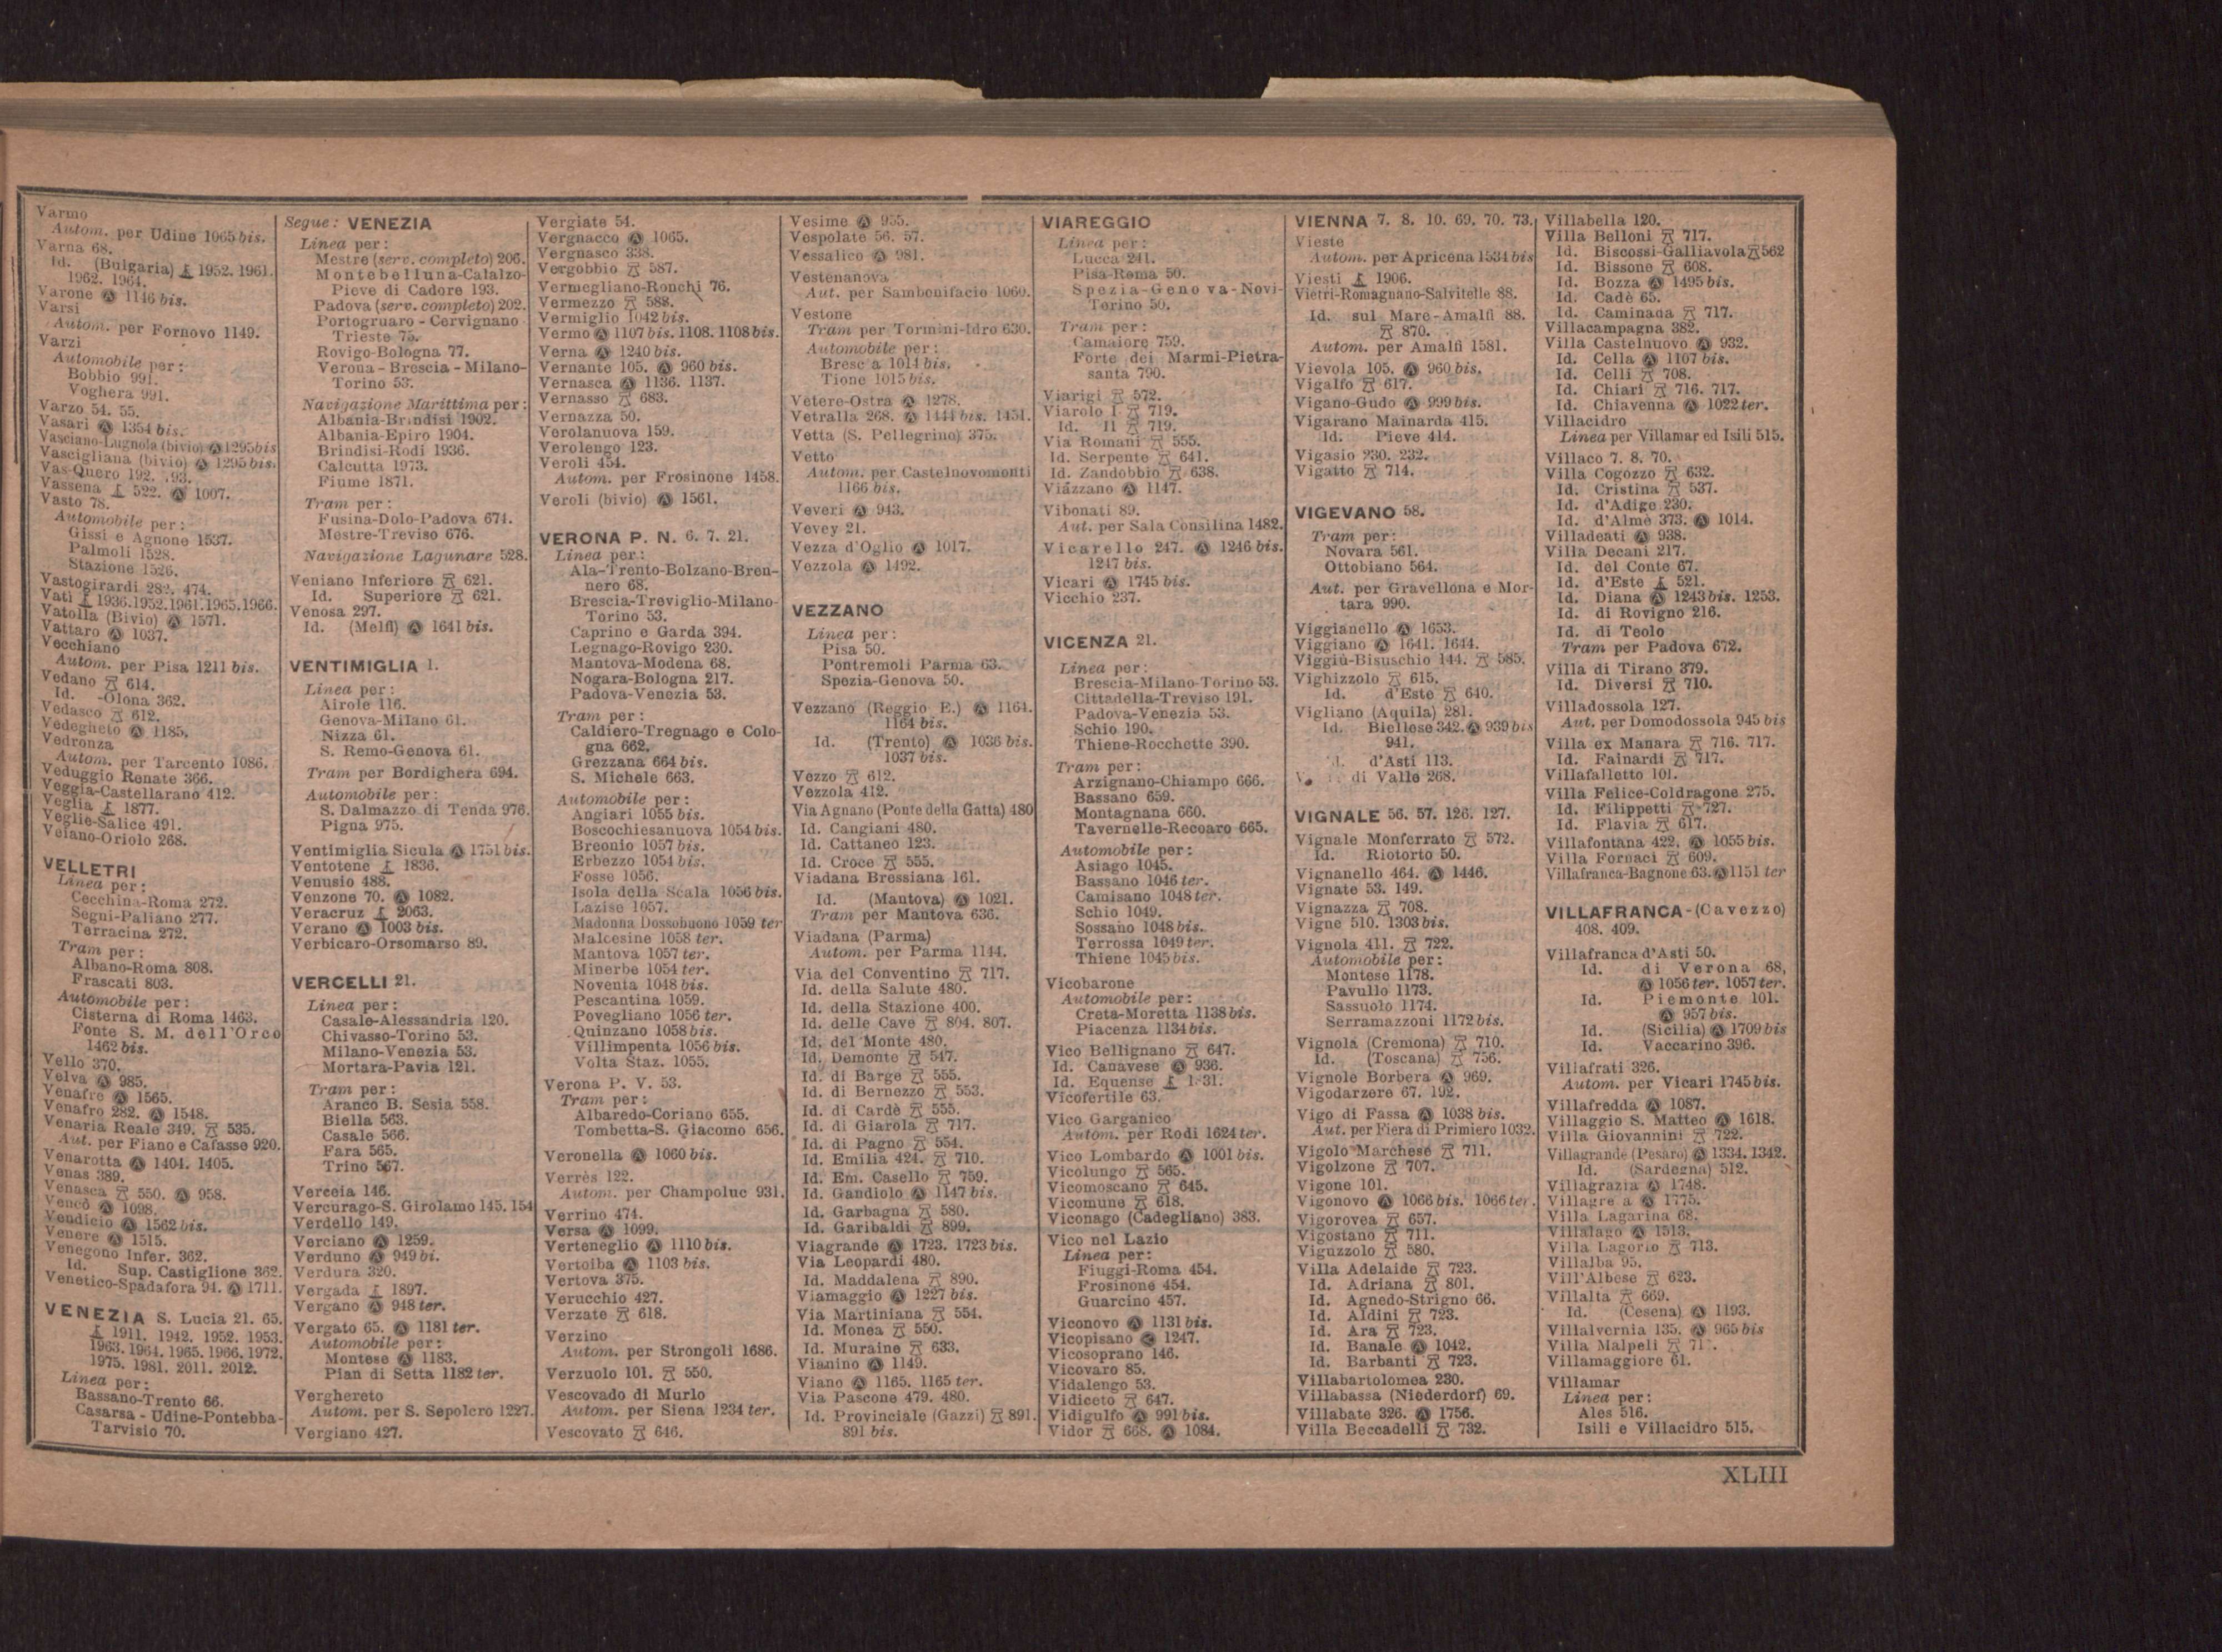 Varmo
Autom. per Udine 1065 bis.
Varna 68.
Id. (Bulgaria) 1952. 1961.
1962. 1964.
Varone Ⓐ 1146 bis.
Varsi
Autom. per Fornovo 1149.
Varzi
Automobile per:
Bobbio 991.
Voghera 991.
Varzo 54. 55.
Vasari Ⓐ 1354 bis.
Vasciano-Lugnola (bivio) Ⓐ 1295 bis
Vascigliana (bivio) Ⓐ 1295 bis.
Vas-Quero 192.
Vassena 522. Ⓐ 1007.
Vasto 78.
Automobile per:
Gissi e Agnone 1537.
Palmoli 1528.
Stazione 1526.
Vastogirardi 282. 474.
Vati 1936.1952.1961.1965.1966.
Vatolla (Bivio) Ⓐ 1571.
Vattaro Ⓐ 1037.
Vecchiano
Autom. per Pisa 1211 bis.
Vedano 614.
Id. -Olona 362.
Vedasco 612.
Vedegheto Ⓐ 1185.
Vedronza
Autom. per Tarcento 1086.
Veduggio Renate 366.
Veggia-Castellarano 412.
Veglia 1877.
Veglie-Salice 491.
Veiano-Oriolo 268.
VELLETRI
Linea per:
Cecchina-Roma 272.
Segni-Paliano 277.
Terracina 272.
Tram per:
Albano-Roma 808.
Frascati 803.
Automobile per:
Cisterna di Roma 1463.
Fonte S. M. dell'Orco
1462 bis.
Vello 370.
Velva Ⓐ 985.
Venafre Ⓐ 1565.
Venafro 282. Ⓐ 1548.
Venaria Reale 349. 535.
Aut. per Fiano e Cafasse 920.
Venarotta Ⓐ 1404. 1405.
Venas 389.
Venasca 550. Ⓐ 958.
Vencò Ⓐ 1098.
Vendicio Ⓐ 1562 bis.
Venere Ⓐ 1515.
Venegono Infer. 362.
Id. Sup. Castiglione 362.
Venetico-Spadafora 94. Ⓐ 1711.
VENEZIA S. Lucia 21. 65.
1911. 1942. 1952. 1953.
1963. 1964. 1965. 1966. 1972.
1975. 1981. 2011. 2012.
Linea per:
Bassano-Trento 66.
Casarsa - Udine-Pontebba-
Tarvisio 70.
Segue: VENEZIA
Linea per:
Mestre (serv. completo) 206.
Montebelluna-Calalzo-
Pieve di Cadore 193.
Padova (serv. completo) 202.
Portogruaro - Cervignano
Trieste 75.
Rovigo-Bologna 77.
Verona - Brescia - Milano-
Torino 53.
Navigazione Marittima per:
Albania-Brindisi 1902.
Albania-Epiro 1904.
Brindisi-Rodi 1936.
Calcutta 1973.
Fiume 1871.
Tram per:
Fusina-Dolo-Padova 674.
Mestre-Treviso 676.
Navigazione Lagunare 528.
Veniano Inferiore 621.
Id. Superiore 621.
Venosa 297.
Id. (Melfi) Ⓐ 1641 bis.
VENTIMIGLIA 1.
Linea per:
Airole 116.
Genova-Milano 61.
Nizza 61.
S. Remo-Genova 61.
Tram per Bordighera 694.
Automobile per:
S. Dalmazzo di Tenda 976.
Pigna 975.
Ventimiglia Sicula Ⓐ 1751 bis.
Ventotene 1836.
Venusio 488.
Venzone 70. Ⓐ 1082.
Veracruz 2063.
Verano Ⓐ 1003 bis.
Verbicaro-Orsomarso 89.
VERCELLI 21.
Linea per:
Casale-Alessandria 120.
Chivasso-Torino 53.
Milano-Venezia 53.
Mortara-Pavia 121.
Tram per:
Aranco B. Sesia 558.
Biella 563.
Casale 566.
Fara 565.
Trino 567.
Verceia 146.
Vercurago-S. Girolamo 145. 154
Verdello 149.
Verciano Ⓐ 1259.
Verduno Ⓐ 949 bi.
Verdura 320.
Vergada 1897.
Vergano Ⓐ 948 ter.
Vergato 65. Ⓐ 1181 ter.
Automobile per:
Montese Ⓐ 1183.
Pian di Setta 1182 ter.
Verghereto
Autom. per S. Sepolcro 1227.
Vergiano 427.
Vergiate 54.
Vergnacco Ⓐ 1065.
Vergnasco 338.
Vergobbio 587.
Vermegliano-Ronchi 76.
Vermezzo 588.
Vermiglio 1042 bis.
Vermo Ⓐ 1107 bis. 1108. 1108 bis.
Verna Ⓐ 1240 bis.
Vernante 105. Ⓐ 960 bis.
Vernasca Ⓐ 1136. 1137.
Vernasso 683.
Vernazza 50.
Verolanuova 159.
Verolengo 123.
Veroli 454.
Autom. per Frosinone 1458.
Veroli (bivio) Ⓐ 1561.
VERONA P. N. 6. 7. 21.
Linea per:
Ala-Trento-Bolzano-Bren-
nero 68.
Brescia-Treviglio-Milano-
Torino 53.
Caprino e Garda 394.
Legnago-Rovigo 230.
Mantova-Modena 68.
Nogara-Bologna 217.
Padova-Venezia 53.
Tram per:
Caldiero-Tregnago e Colo-
gna 662.
Grezzana 664 bis.
S. Michele 663.
Automobile per:
Angiari 1055 bis.
Boscochiesanuova 1054 bis.
Breonio 1057 bis.
Erbezzo 1054 bis.
Fosse 1056.
Isola della Scala 1056 bis.
Lazise 1057.
Madonna Dossobuono 1059 ter
Malcesine 1058 ter.
Mantova 1057 ter.
Minerbe 1054 ter.
Noventa 1048 bis.
Pescantina 1059.
Povegliano 1056 ter.
Quinzano 1058 bis.
Villimpenta 1056 bis.
Volta Staz. 1055.
Verona P. V. 53.
Tram per:
Albaredo-Coriano 655.
Tombetta-S. Giacomo 656.
Veronella Ⓐ 1060 bis.
Verrès 122.
Autom. per Champoluc 931.
Verrino 474.
Versa Ⓐ 1099.
Verteneglio Ⓐ 1110 bis.
Vertoiba Ⓐ 1103 bis.
Vertova 375.
Verucchio 427.
Verzate 618.
Verzino
Autom. per Strongoli 1686.
Verzuolo 101. 550.
Vescovado di Murlo
Autom. per Siena 1234 ter.
Vescovato 646.
Vesime Ⓐ 955.
Vespolate 56. 57.
Vessalico Ⓐ 981.
Vestenanova
Aut. per Sambonifacio 1060.
Vestone
Tram per Tormini-Idro 630.
Automobile per:
Bresc a 1014 bis.
Tione 1015 bis.
Vetere-Ostra Ⓐ 1278.
Vetralla 268. Ⓐ 1444 bis. 1451.
Vetta (S. Pellegrino) 375.
Vetto
Autom. per Castelnovomonti
1166 bis.
Veveri Ⓐ 943.
Vevey 21.
Vezza d'Oglio Ⓐ 1017.
Vezzola Ⓐ 1492.
VEZZANO
Linea per:
Pisa 50.
Pontremoli Parma 63.
Spezia-Genova 50.
Vezzano (Reggio E.) Ⓐ 1164.
1164 bis.
Id. (Trento) Ⓐ 1036 bis.
1037 bis.
Vezzo 612.
Vezzola 412.
Via Agnano (Ponte della Gatta) 480
Id. Cangiani 480.
Id. Cattaneo 123.
Id. Croce 555.
Viadana Bressiana 161.
Id. (Mantova) Ⓐ 1021.
Tram per Mantova 636.
Viadana (Parma)
Autom. per Parma 1144.
Via del Conventino 717.
Id. della Salute 480.
Id. della Stazione 400.
Id. delle Cave 804. 807.
Id. del Monte 480.
Id. Demonte 547.
Id. di Barge 555.
Id. di Bernezzo 553.
Id. di Cardè 555.
Id. di Giarola 717.
Id. di Pagno 554.
Id. Emilia 424. 710.
Id. Em. Casello 759.
Id. Gandiolo Ⓐ 1147 bis.
Id. Garbagna 580.
Id. Garibaldi 899.
Viagrande Ⓐ 1723. 1723 bis.
Via Leopardi 480.
Id. Maddalena 890.
Viamaggio Ⓐ 1227 bis.
Via Martiniana 554.
Id. Monea 550.
Id. Muraine 633.
Vianino Ⓐ 1149.
Viano Ⓐ 1165. 1165 ter.
Via Pascone 479. 480.
Id. Provinciale (Gazzi) 891.
891 bis.
VIAREGGIO
Linea per:
Lucca 241.
Pisa-Roma 50.
Spezia-Genova-Novi-
Torino 50.
Tram per:
Camaiore 759.
Forte dei Marmi-Pietra-
santa 790.
Viarigi 572.
Viarolo I 719.
Id. II 719.
Via Romani 555.
Id. Serpente 641.
Id. Zandobbio 638.
Viazzano Ⓐ 1147.
Vibonati 89.
Aut. per Sala Consilina 1482.
Vicarello 247. Ⓐ 1246 bis.
1247 bis.
Vicari Ⓐ 1745 bis.
Vicchio 237.
VICENZA 21.
Linea per:
Brescia-Milano-Torino 53.
Cittadella-Treviso 191.
Padova-Venezia 53.
Schio 190.
Thiene-Rocchette 390.
Tram per:
Arzignano-Chiampo 666.
Bassano 659.
Montagnana 660.
Tavernelle-Recoaro 665.
Automobile per:
Asiago 1045.
Bassano 1046 ter.
Camisano 1048 ter.
Schio 1049.
Sossano 1048 bis.
Terrossa 1049 ter.
Thiene 1045 bis.
Vicobarone
Automobile per:
Creta-Moretta 1138 bis.
Piacenza 1134 bis.
Vico Bellignano 647.
Id. Canavese Ⓐ 936.
Id. Equense
Vicofertile 63.
Vico Garganico
Autom. per Rodi 1624 ter.
Vico Lombardo Ⓐ 1001 bis.
Vicolungo 565.
Vicomoscano 645.
Vicomune 618.
Viconago (Cadegliano) 383.
Vico nel Lazio
Linea per:
Fiuggi-Roma 454.
Frosinone 454.
Guarcino 457.
Viconovo Ⓐ 1131 bis.
Vicopisano Ⓐ 1247.
Vicosoprano 146.
Vicovaro 85.
Vidalengo 53.
Vidiceto 647.
Vidigulfo Ⓐ 991 bis.
Vidor 668. Ⓐ 1084.
VIENNA 7. 8. 10. 69. 70. 73.
Vieste
Autom. per Apricena 1534 bis
Viesti 1906.
Vietri-Romagnano-Salvitelle 88.
Id. sul Mare-Amalfi 88.
870.
Autom. per Amalfi 1581.
Vievola 105. Ⓐ 960 bis.
Vigalfo 617.
Vigano-Gudo Ⓐ 999 bis.
Vigarano Mainarda 415.
Id. Pieve 414.
Vigasio 230. 232.
Vigatto 714.
VIGEVANO 58.
Tram per:
Novara 561.
Ottobiano 564.
Aut. per Gravellona e Mor-
tara 990.
Viggianello Ⓐ 1653.
Viggiano Ⓐ 1641. 1644.
Viggiù-Bisuschio 144. 585.
Vighizzolo 615.
Id. d'Este 640.
Vigliano (Aquila) 281.
Id. Biellese 342. Ⓐ 939 bis
941.
d'Asti 113.
di Valle 268.
VIGNALE 56. 57. 126. 127.
Vignale Monferrato 572.
Id. Riotorto 50.
Vignanello 464. Ⓐ 1446.
Vignate 53. 149.
Vignazza 708.
Vigne 510. 1303 bis.
Vignola 411. 722.
Automobile per:
Montese 1178.
Pavullo 1173.
Sassuolo 1174.
Serramazzoni 1172 bis.
Vignola (Cremona) 710.
Id. (Toscana) 756.
Vignole Borbera Ⓐ 969.
Vigodarzere 67. 192.
Vigo di Fassa Ⓐ 1038 bis.
Aut. per Fiera di Primiero 1032.
Vigolo Marchese 711.
Vigolzone 707.
Vigone 101.
Vigonovo Ⓐ 1066 bis. 1066 ter.
Vigorovea 657.
Vigostano 711.
Viguzzolo 580.
Villa Adelaide 723.
Id. Adriana 801.
Id. Agnedo-Strigno 66.
Id. Aldini 723.
Id. Ara 723.
Id. Banale Ⓐ 1042.
Id. Barbanti 723.
Villabartolomea 230.
Villabassa (Niederdorf) 69.
Villabate 326. Ⓐ 1756.
Villa Beccadelli 732.
Villabella 120.
Villa Belloni 717.
Id. Biscossi-Galliavola 562
Id. Bissone 608.
Id. Bozza Ⓐ 1495 bis.
Id. Cadè 65.
Id. Caminada 717.
Villacampagna 382.
Villa Castelnuovo Ⓐ 932.
Id. Cella Ⓐ 1107 bis.
Id. Celli 708.
Id. Chiari 716. 717.
Id. Chiavenna Ⓐ 1022 ter.
Villacidro
Linea per Villamar ed Isili 515.
Villaco 7. 8. 70.
Villa Cogozzo 632.
Id. Cristina 537.
Id. d'Adige 230.
Id. d'Almè 373. Ⓐ 1014.
Villadeati Ⓐ 938.
Villa Decani 217.
Id. del Conte 67.
Id. d'Este 521.
Id. Diana Ⓐ 1243 bis. 1253.
Id. di Rovigno 216.
Id. di Teolo
Tram per Padova 672.
Villa di Tirano 379.
Id. Diversi 710.
Villadossola 127.
Aut. per Domodossola 945 bis
Villa ex Manara 716. 717.
Id. Fainardi 717.
Villafalletto 101.
Villa Felice-Coldragone 275.
Id. Filippetti 727.
Id. Flavia 617.
Villafontana 422. Ⓐ 1055 bis.
Villa Fornaci 609.
Villafranca-Bagnone 63. Ⓐ 1151 ter
VILLAFRANCA-(Cavezzo)
408. 409.
Villafranca d'Asti 50.
Id. di Verona 68,
Ⓐ 1056 ter. 1057 ter.
Id. Piemonte 101.
Ⓐ 957 bis.
Id. (Sicilia) Ⓐ 1709 bis
Id. Vaccarino 396.
Villafrati 326.
Autom. per Vicari 1745 bis.
Villafredda Ⓐ 1087.
Villaggio S. Matteo Ⓐ 1618.
Villa Giovannini 722.
Villagrande (Pesaro) Ⓐ 1334. 1342.
Id. (Sardegna) 512.
Villagrazia Ⓐ 1748.
Villagre a Ⓐ 1775.
Villa Lagarina 68.
Villalago Ⓐ 1513.
Villa Lagorio 713.
Villalba 95.
Vill'Albese 623.
Villalta 669.
Id. (Cesena) Ⓐ 1193.
Villalvernia 135. Ⓐ 965 bis
Villa Malpeli
Villamaggiore 61.
Villamar
Linea per:
Ales 516.
Isili e Villacidro 515.
XLIII